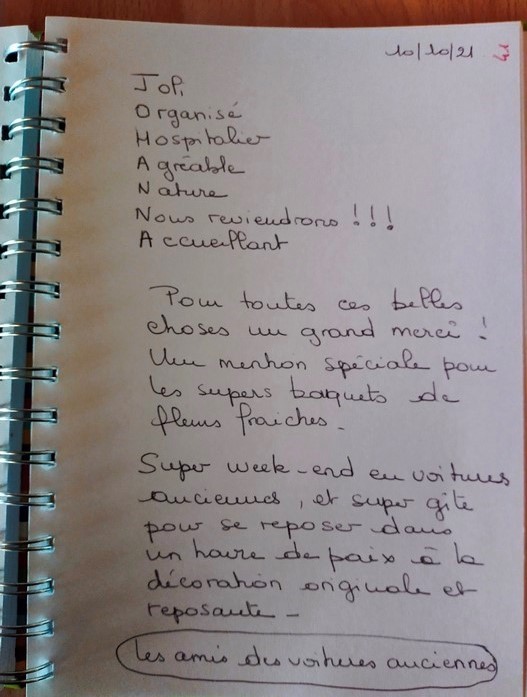 10/10/21 41
Joli
Organisé
Hospitalier
Agréable
Nature
Nous reviendrons !!!
Accueillant
Pour toutes ces belles
choses un grand merci !
Une mention spéciale pour
les supers baquets de
fleurs fraiches.
Super week-end en voitures
anciennes, et super gîte
pour se reposer dans
un havre de paix à la
décoration originale et
reposante -
les amis des voitures anciennes